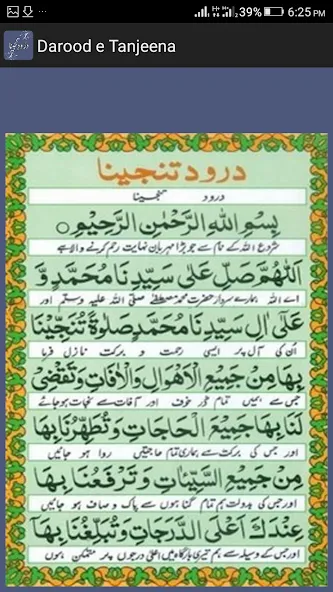 39% 6:25 PM
Darood e Tanjeena
درود تنجینا
درود تنجینا
بِسْمِ اللهِ الرَّحْمٰنِ الرَّحِيْمِ ○
شروع اللہ کے نام سے جو بڑا مہربان نہایت رحم کرنے والا ہے
اَللّٰهُمَّ صَلِّ عَلٰى سَيِّدِنَا مُحَمَّدٍ وَّ
اے اللہ ہمارے سردار حضرت محمد مصطفےٰ صلی اللہ علیہ وسلم اور
عَلٰٓى اٰلِ سَيِّدِنَا مُحَمَّدٍ صَلٰوةً تُنَجِّيْنَا
اُن کی آل پر ایسی رحمت و برکت نازل فرما
بِهَا مِنْ جَمِيْعِ الْاَهْوَالِ وَالْاٰفَاتِ وَتَقْضِىْ
جس سے ہمیں تمام ڈر خوف اور آفات سے نجات ہو جائے
لَنَا بِهَا جَمِيْعَ الْحَاجَاتِ وَتُطَهِّرُنَا بِهَا
اور جس کی برکت سے ہماری تمام حاجتیں روا ہو جائیں
مِنْ جَمِيْعِ السَّيِّاٰتِ وَتَرْفَعُنَا بِهَا
اور جس کی بدولت ہم تمام گناہوں سے پاک و صاف ہو جائیں
عِنْدَكَ اَعْلَى الدَّرَجَاتِ وَتُبَلِّغُنَا بِهَآ
اور جس کے وسیلہ سے ہم تیری بارگاہ میں اعلیٰ درجوں پر متمکن ہوں